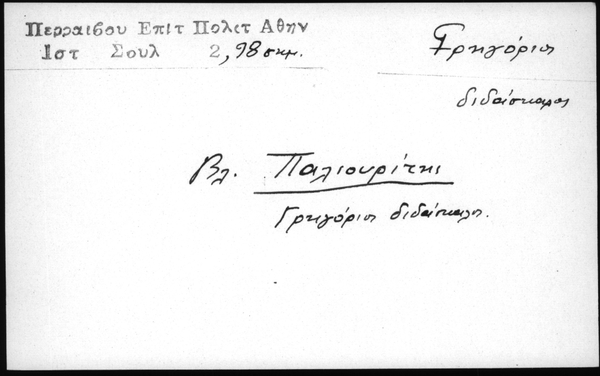 Περραιβου Επίτ Πολιτ Αθην
Ιστ Σουλ 2, 98 σημ.
Γρηγόριος
διδάσκαλος
Βλ. Παλιουρίτης
Γρηγόριος διδάσκαλος.